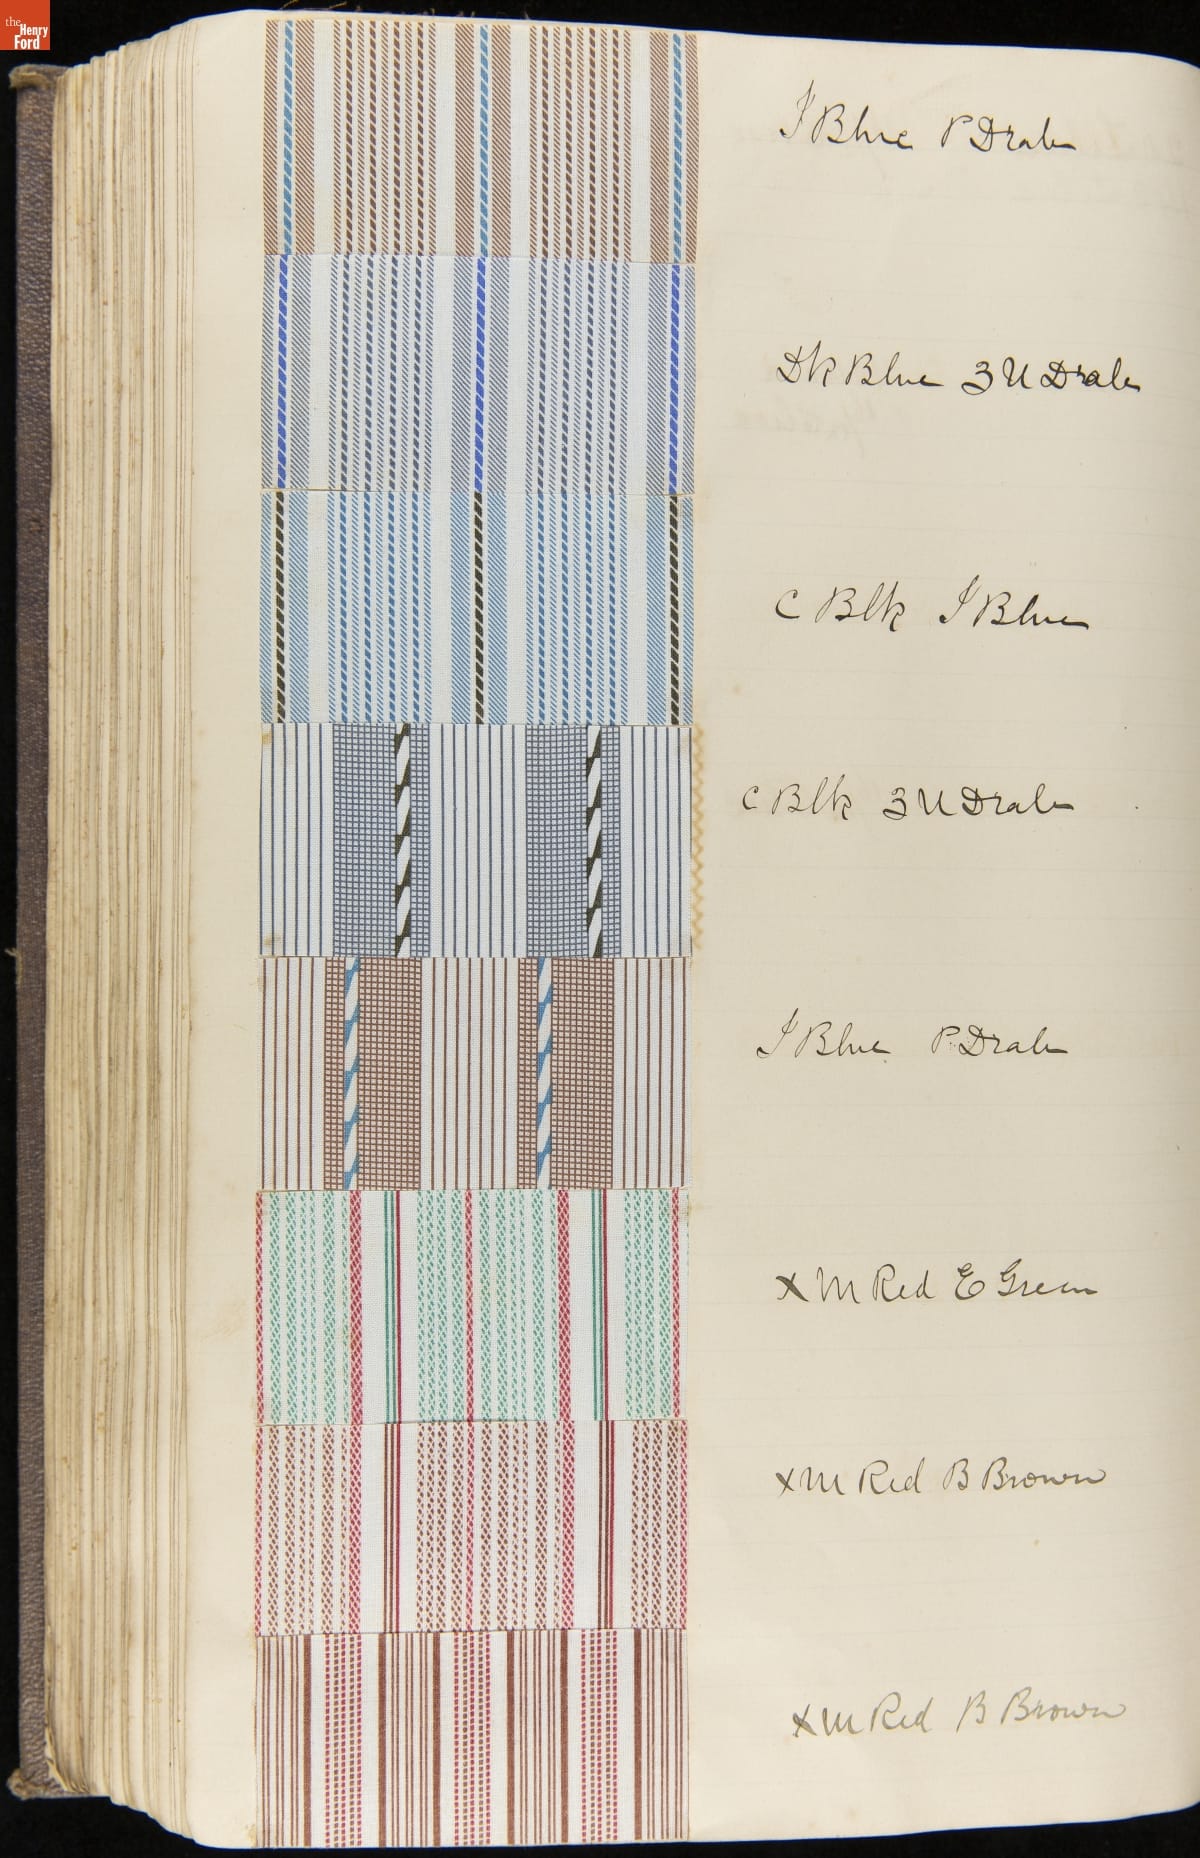 the Henry Ford
I Blue P Drab
Dk Blue 3 U Drab
C Blk I Blue
C Blk 3 U Drab
I Blue P Drab
X M Red E Green
X M Red B Brown
X M Red B Brown